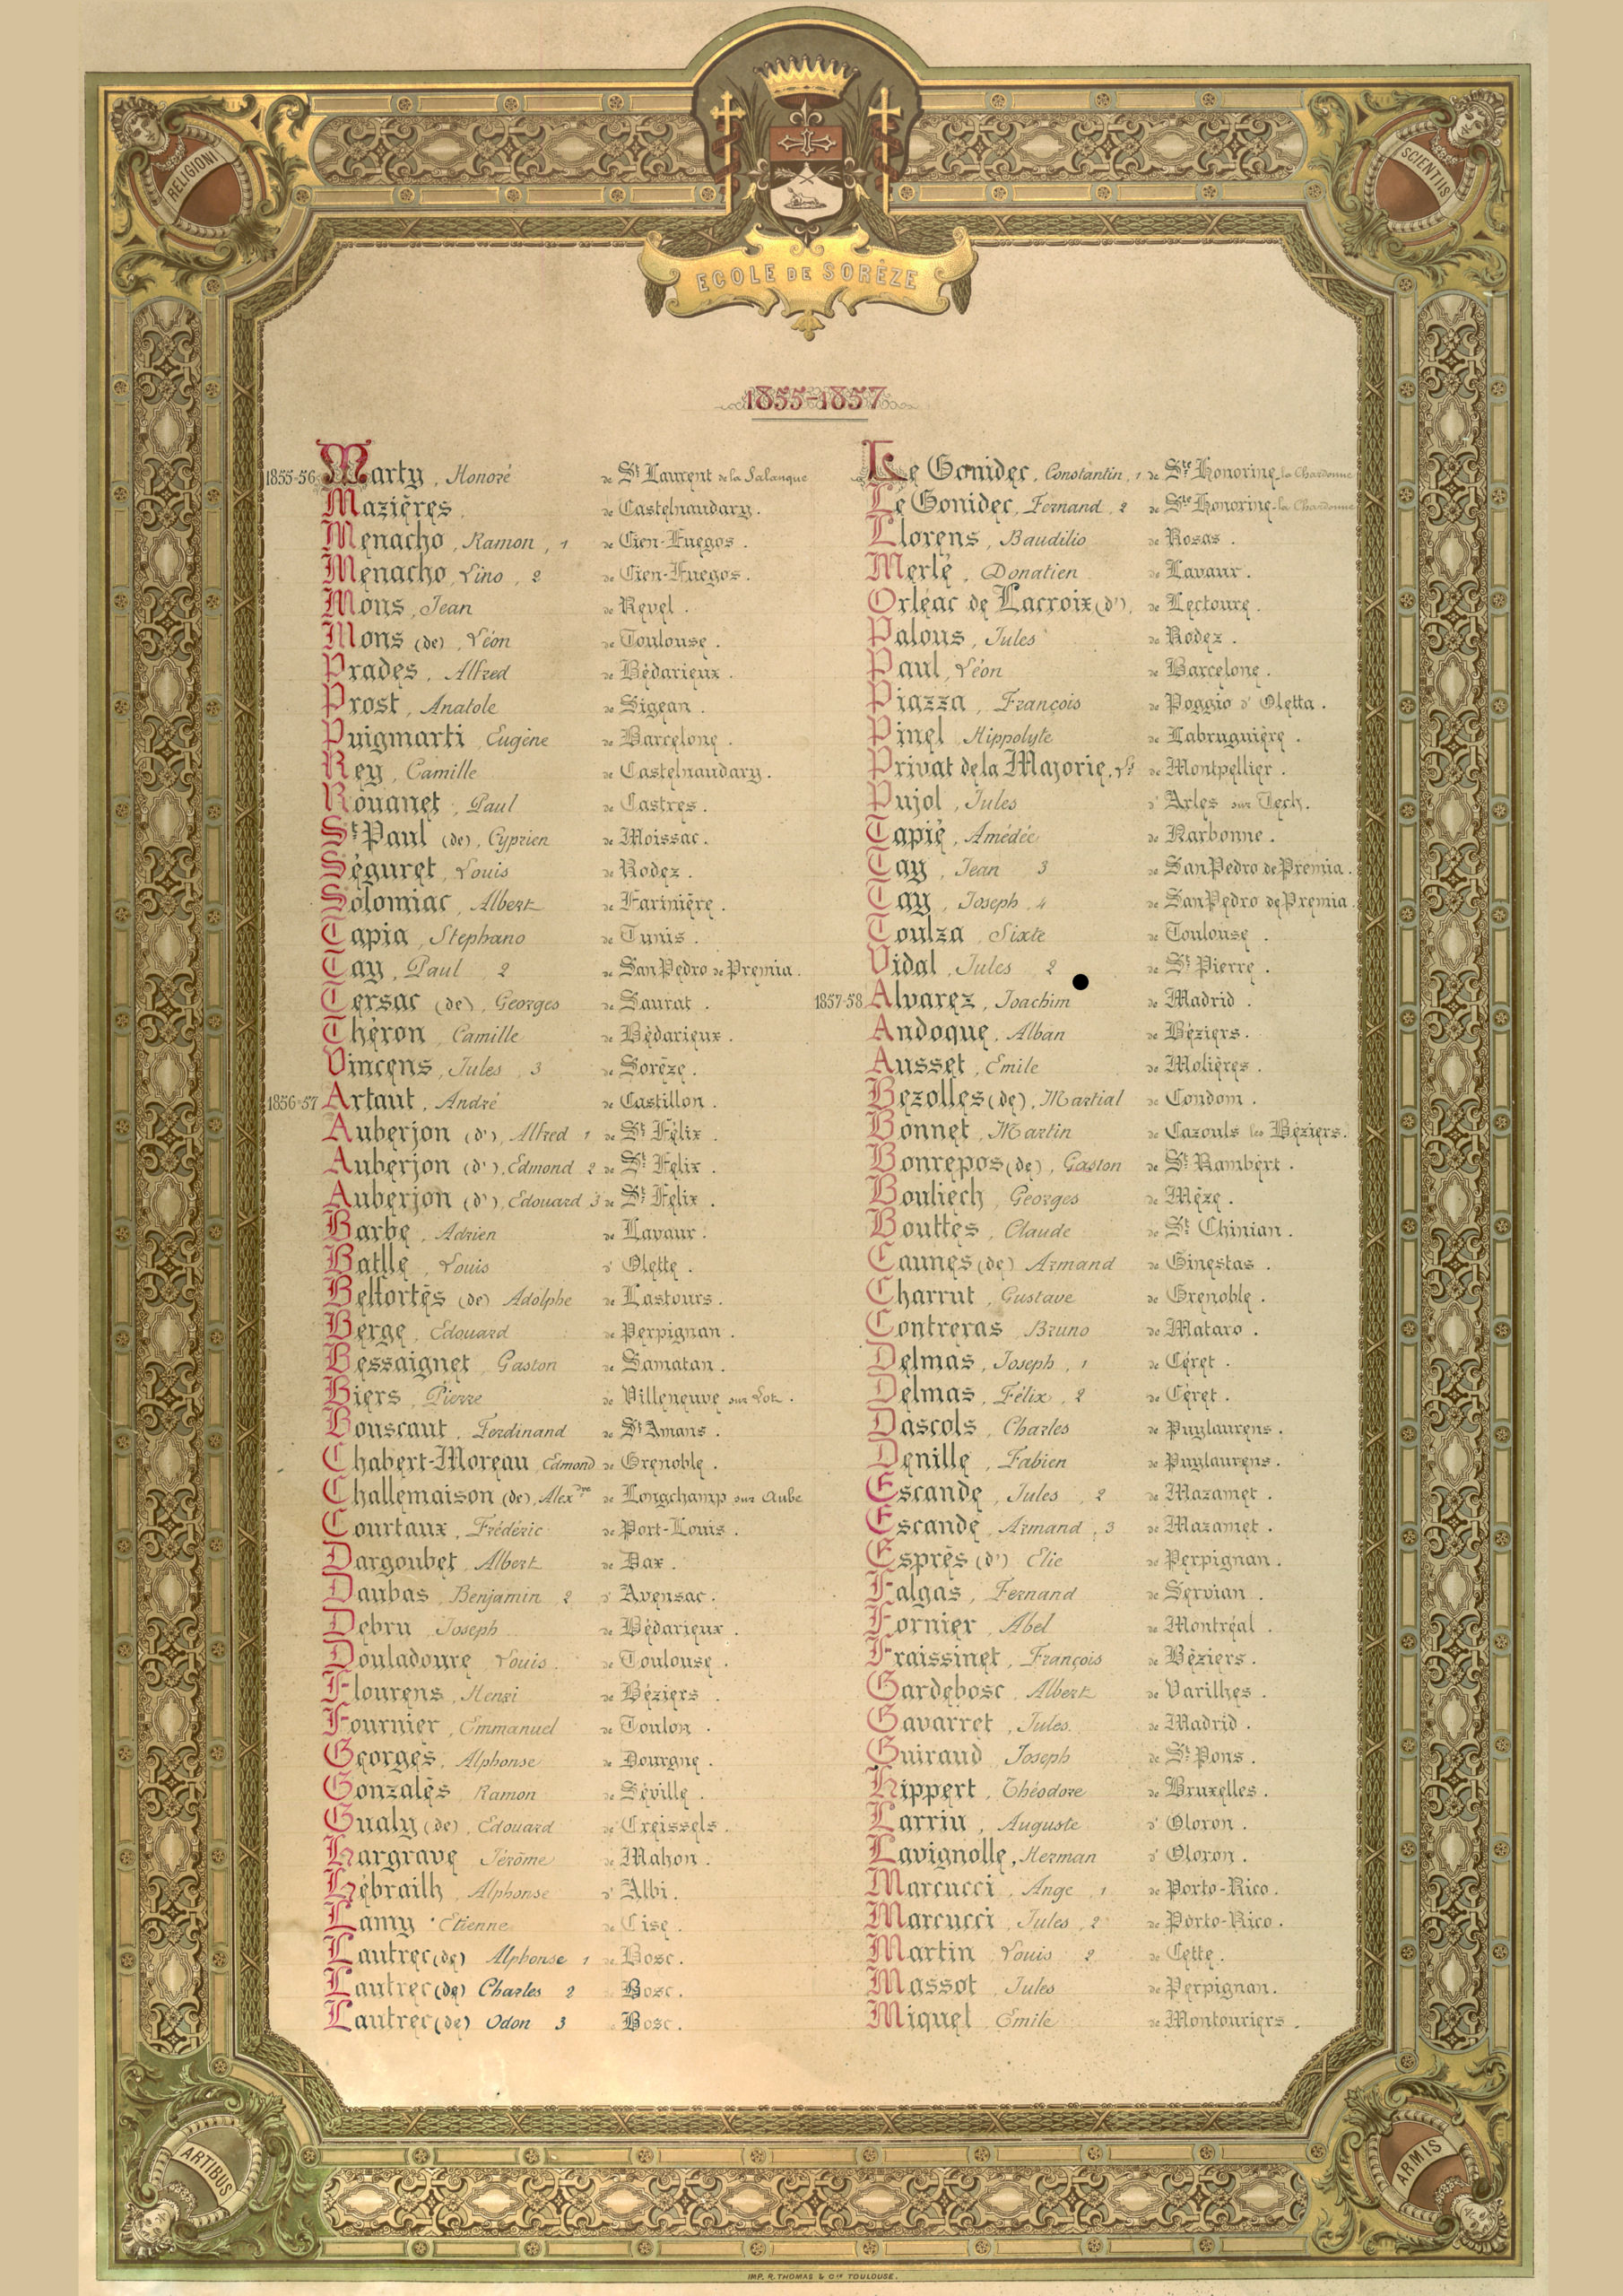 RELIGIONI
SCIENTIIS
ECOLE DE SORÈZE
1855-1857
1855-56 Marty, Honoré de St Laurent de la Salanque
Mazières. de Castelnaudary.
Menacho, Ramon, 1 de Cien-Fuegos.
Menacho, Lino, 2 de Cien-Fuegos.
Mons, Jean de Revel.
Mons (de), Léon de Toulouse.
Prades, Alfred de Bédarieux.
Prost, Anatole de Sigean.
Puigmarti, Eugène de Barcelone.
Rey, Camille de Castelnaudary.
Rouanet, Paul de Castres.
St Paul (de), Cyprien de Moissac.
Séguret, Louis de Rodez.
Solomiac, Albert de Farinière.
Tapia, Stephano de Tunis.
Tay, Paul 2 de San Pedro de Premia.
Tersac (de), Georges de Saurat.
Théron, Camille de Bédarieux.
Vincens, Jules, 3 de Sorèze.
1856-57 Artaut, André de Castillon.
Auberjon (d'), Alfred 1 de St Félix.
Auberjon (d'), Edmond 2 de St Felix.
Auberjon (d'), Edouard 3 de St Felix.
Barbe, Adrien de Lavaur.
Batlle, Louis d' Olette.
Belfortès (de) Adolphe de Lastours.
Berge, Edouard de Perpignan.
Bessaignet, Gaston de Samatan.
Biers, Pierre de Villeneuve sur Lot.
Bouscaut, Ferdinand de St Amans.
Chabert-Moreau, Edmond de Grenoble.
Challemaison (de), Alexdre de Longchamp sur Aube
Courtaux, Frédéric de Port-Louis.
Dargoubet, Albert de Dax.
Daubas, Benjamin, 2 d' Avensac.
Debru, Joseph de Bédarieux.
Douladoure, Louis. de Toulouse.
Flourens, Henri de Béziers.
Fournier, Emmanuel de Toulon.
Georges, Alphonse de Dourgne.
Gonzalès, Ramon de Séville.
Gualy (de), Edouard de Creissels.
Hargrave Jérôme de Mahon.
Hébrailh, Alphonse d' Albi.
Lamy Etienne de Cise.
Lautrec (de) Alphonse 1 de Bosc.
Lautrec (de) Charles 2 Bosc.
Lautrec (de) Odon 3 Bosc.
Le Gonidec, Constantin, 1 de Ste Honorine la Chardonne
Le Gonidec, Fernand, 2 de Ste Honorine la Chardonne
Llorens, Baudilio de Rosas.
Merlé, Donatien de Lavaur.
Orléac de Lacroix (d'), de Lectoure.
Palous, Jules de Rodez.
Paul, Léon de Barcelone.
Piazza, François de Poggio d' Oletta.
Pinel, Hippolyte de Labruguière.
Privat de la Majorie, Ls de Montpellier.
Pujol, Jules d' Arles sur Tech.
Tapié, Amédée de Narbonne.
Tay, Jean 3 de San Pedro de Premia.
Tay, Joseph, 4 de San Pedro de Premia.
Toulza, Sixte de Toulouse.
Vidal, Jules 2 de St Pierre.
1857-58 Alvarez, Joachim de Madrid.
Andoque, Alban de Béziers.
Ausset, Emile de Molières.
Bezolles (de), Martial de Condom.
Bonnet, Martin de Cazouls les Béziers.
Bonrepos (de), Gaston de St Rambert.
Bouliech, Georges de Mèze.
Bouttes, Claude de St Chinian.
Caunes (de) Armand de Ginestas.
Charrut, Gustave de Grenoble.
Contreras, Bruno de Mataro.
Delmas, Joseph, 1 de Céret.
Delmas, Félix, 2 de Céret.
Dascols, Charles de Puylaurens.
Denille, Fabien de Puylaurens.
Escande, Jules, 2 de Mazamet.
Escande, Armand, 3 de Mazamet.
Esprès (d') Elie de Perpignan.
Falgas, Fernand de Servian.
Fornier, Abel de Montréal.
Fraissinet, François de Béziers.
Gardebosc, Albert de Varilhes.
Gavarret, Jules. de Madrid.
Guiraud Joseph de St Pons.
Hippert, Théodore de Bruxelles.
Larriu, Auguste d' Oloron.
Lavignolle, Herman d' Oloron.
Marcucci, Ange, 1 de Porto-Rico.
Marcucci, Jules, 2 de Porto-Rico.
Martin Louis 2 de Cette.
Massot, Jules de Perpignan.
Miquel Emile de Montouriers.
ARTIBUS
ARMIS
IMP. R. THOMAS & Cie TOULOUSE.